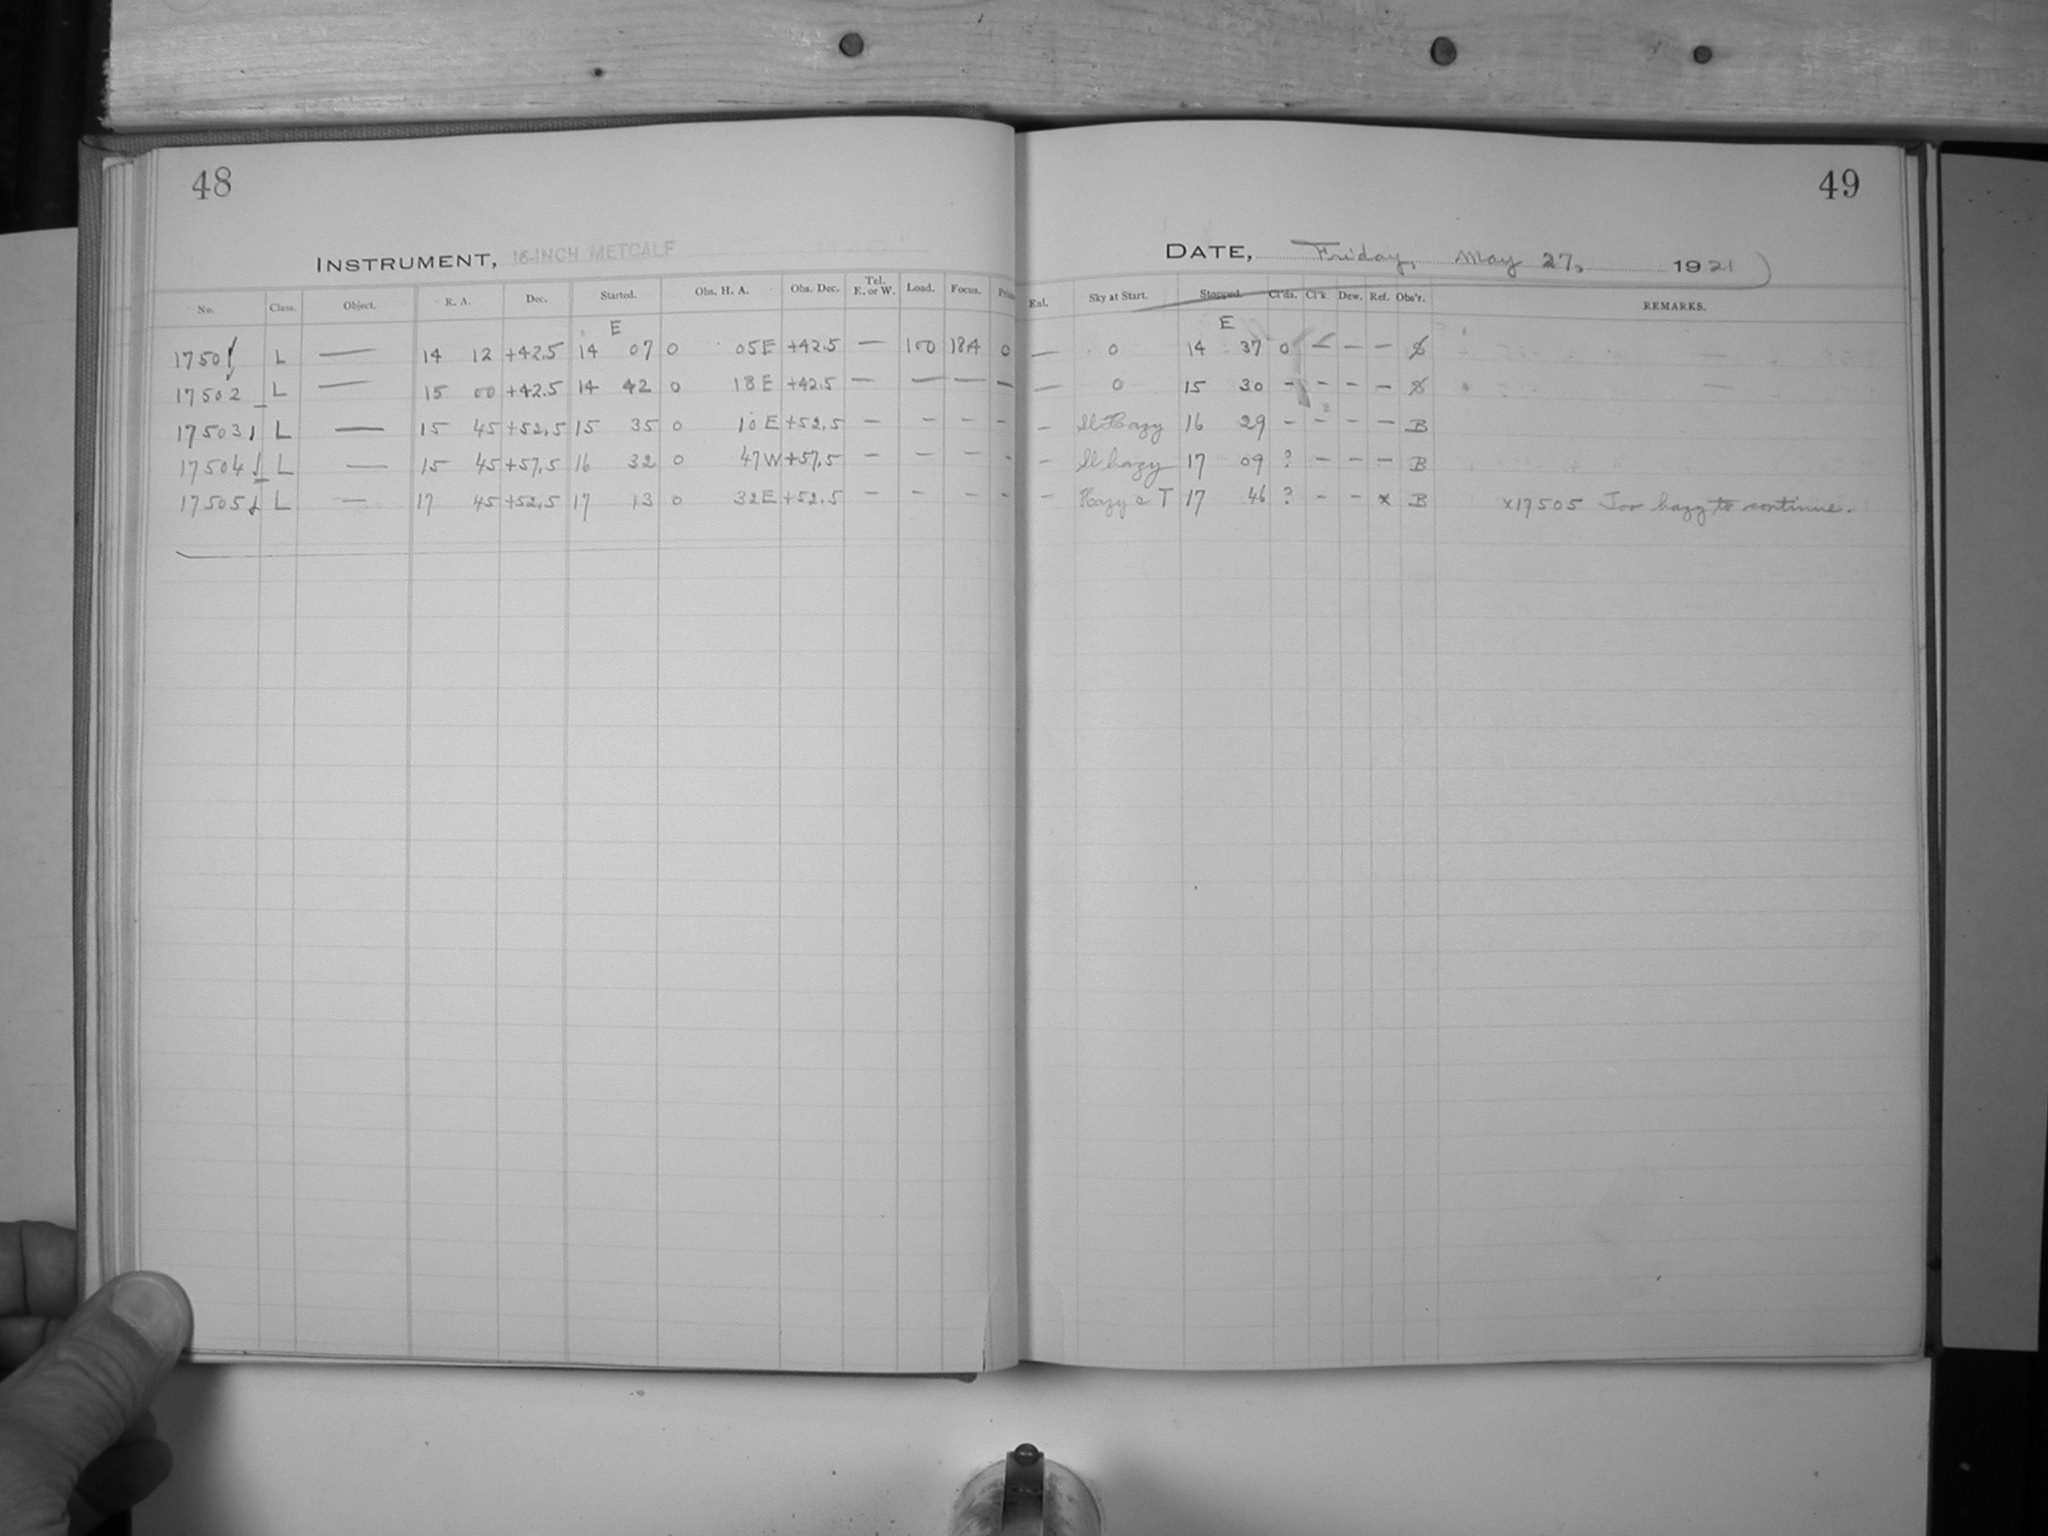 48
INSTRUMENT, 16-INCH METCALF
No. Class. Object. R. A. Dec. Started. Obs. H. A. Obs. Dec. Tel. E. or W. Load. Focus.
E
17501 L — 14 12 +42.5 14 07 0 05E +42.5 — 100 18A 0
17502 L — 15 00 +42.5 14 42 0 18E +42.5 — — — —
17503 L — 15 45 +52.5 15 35 0 10E +52.5 — — — —
17504 L — 15 45 +57.5 16 32 0 47W +57.5 — — — —
17505 L — 17 45 +52.5 17 13 0 32E +52.5 — — — —
49
DATE, Friday, May 27, 1921
Eal. Sky at Start. Stopped. Cl'ds. Cl'k Dew. Ref. Obs'r. REMARKS.
E
— 0 14 37 0 — — —
— 0 15 30 — — — —
— Sl Hazy 16 29 — — — — B
— Sl hazy 17 09 ? — — — B
— Hazy & T 17 46 ? — — x B x17505 Too hazy to continue.